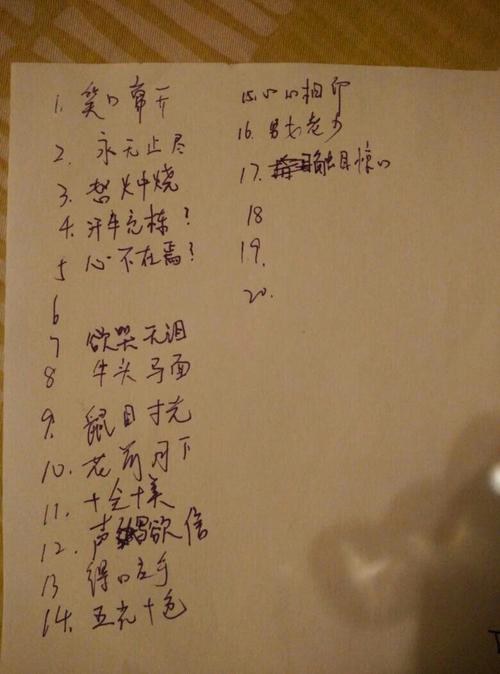 1. 笑口常开
2. 永无止尽
3. 怒火中烧
4. 汗牛充栋？
5 心不在焉？
6
7 欲哭无泪
8 牛头马面
9. 鼠目寸光
10. 花前月下
11. 十全十美
12. 声欲信
13 得心应手
14. 五光十色
15. 心心相印
16. 男女老少
17. 触目惊心
18
19.
20.